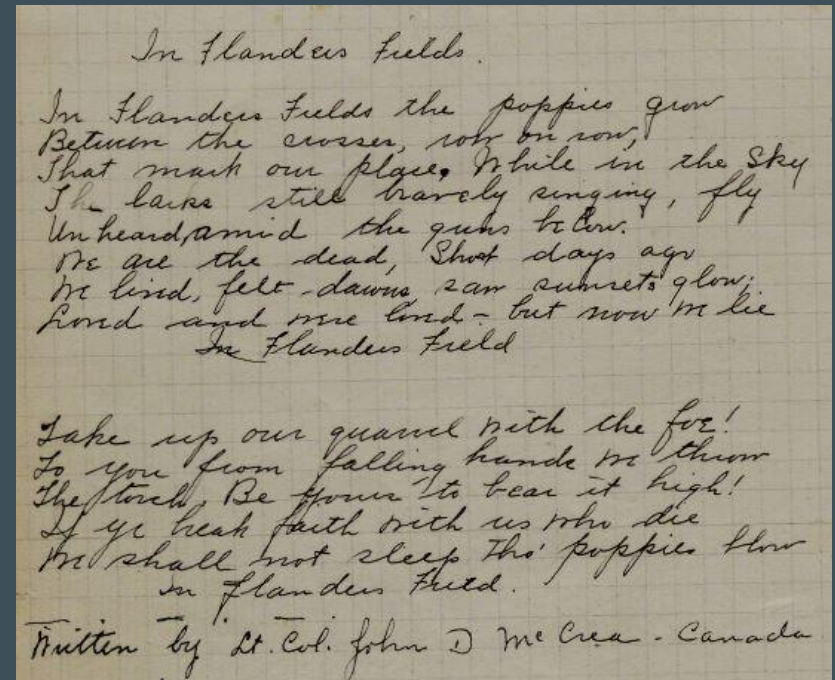 In Flanders Fields.
In Flanders Fields the poppies grow
Between the crosses, row on row,
That mark our place. While in the Sky
The larks still bravely singing, fly
Unheard, amid the guns below.
We are the dead, Short days ago
We lived, felt dawns, saw sunsets glow;
Loved and were loved - but now we lie
In Flanders Field
Take up our quarrel with the foe!
To you from falling hands we throw
The torch, Be yours to bear it high!
If ye break faith with us who die
We shall not sleep Tho' poppies blow
In flanders Field.
Written by Lt. Col. John D McCrea - Canada